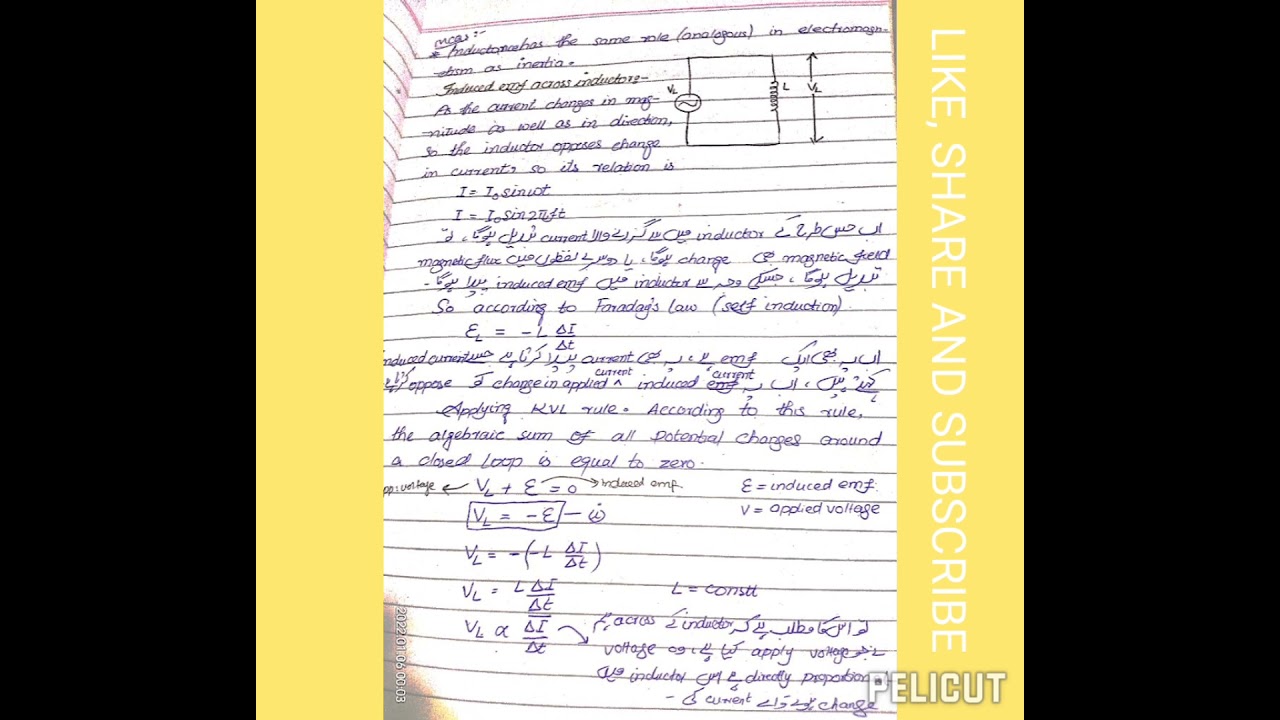 MCQs:-
* Inductance has the same role (analogous) in electromagn-
-etism as inertia.
Induced emf across inductor:-
As the current changes in mag-
-nitude as well as in direction,
so the inductor opposes change
in current, so its relation is
I = I₀ sinωt
I = I₀ sin2πft
VL
L
VL
اب جس طرح کے inductor میں سے گزرنے والا current تبدیل ہوگا، تو
magnetic field بھی change ہوگا، یا دوسرے لفظوں میں magnetic flux
تبدیل ہوگا، جسکی وجہ سے inductor میں induced emf پیدا ہوگا۔
So according to Faraday's law (self induction).
εL = -L ΔI/Δt
اب یہ بھی ایک emf ہے، یہ بھی current پیدا کرتا ہے جسے induced current
کہتے ہیں، اب یہ induced emf current change in applied ^ current کو oppose کرتا ہے
Applying KVL rule. According to this rule,
the algebraic sum of all potential changes around
a closed loop is equal to zero.
app: voltage ← VL + ε = 0 → induced emf.
ε = induced emf.
VL = -ε — (i)
V = applied voltage
VL = -(-L ΔI/Δt)
VL = L ΔI/Δt
L = constt
VL ∝ ΔI/Δt
تو اس کا مطلب ہے کہ inductor کے across ہم
نے جو voltage apply کیا ہے، وہ voltage
directly proportion ہے اس inductor میں
change ہونے والے current کی -
2022.01.06 03:03
LIKE, SHARE AND SUBSCRIBE
PELICUT